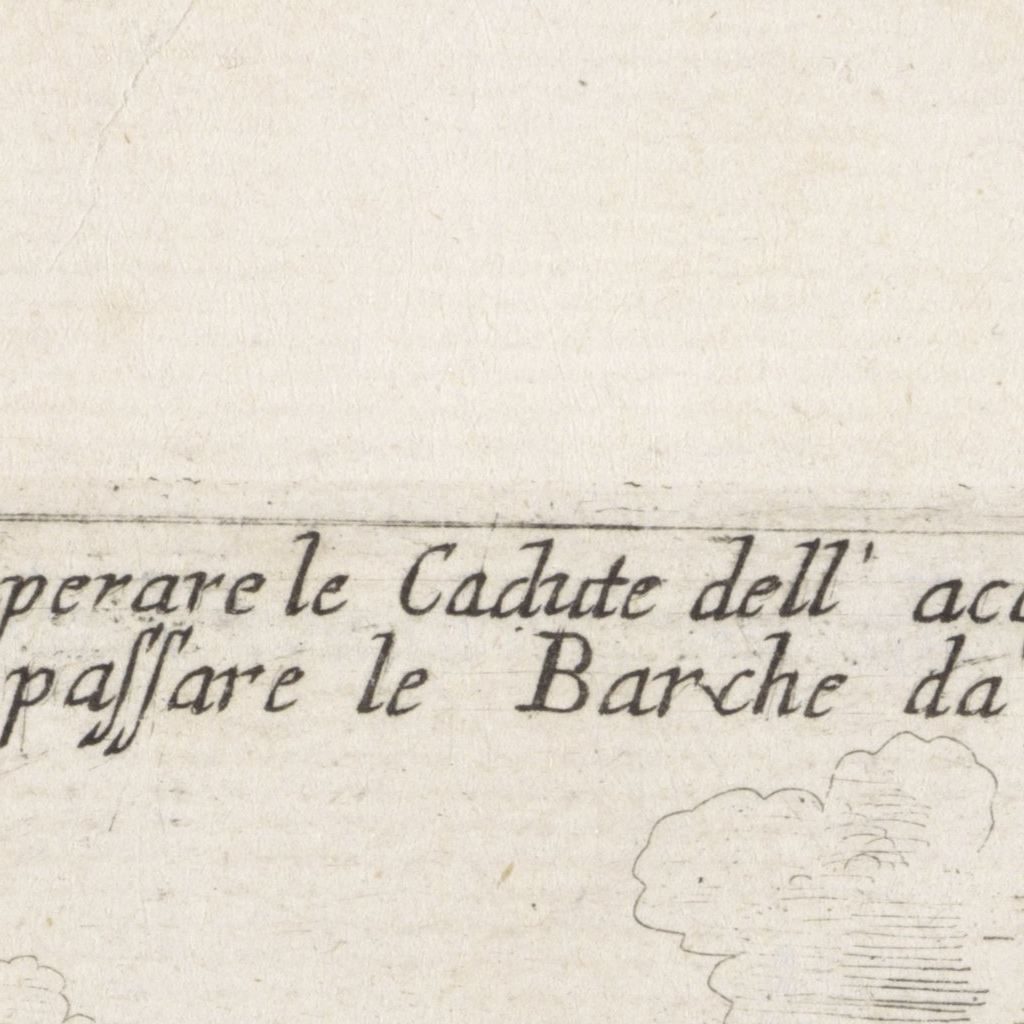 perare le Cadute dell' acq
paſſare le Barche da